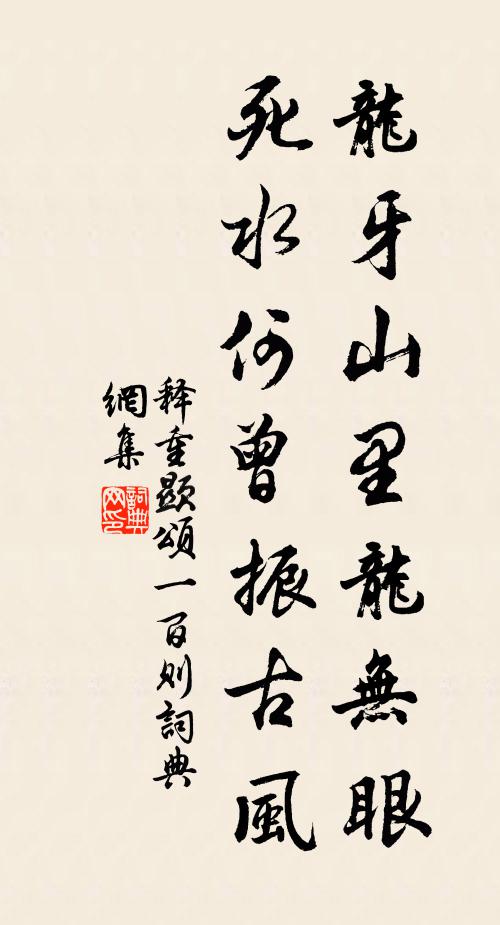 龍牙山里龍無眼
死水何曾振古風
释重顯頌一百則詞典
網集
詞典
网印